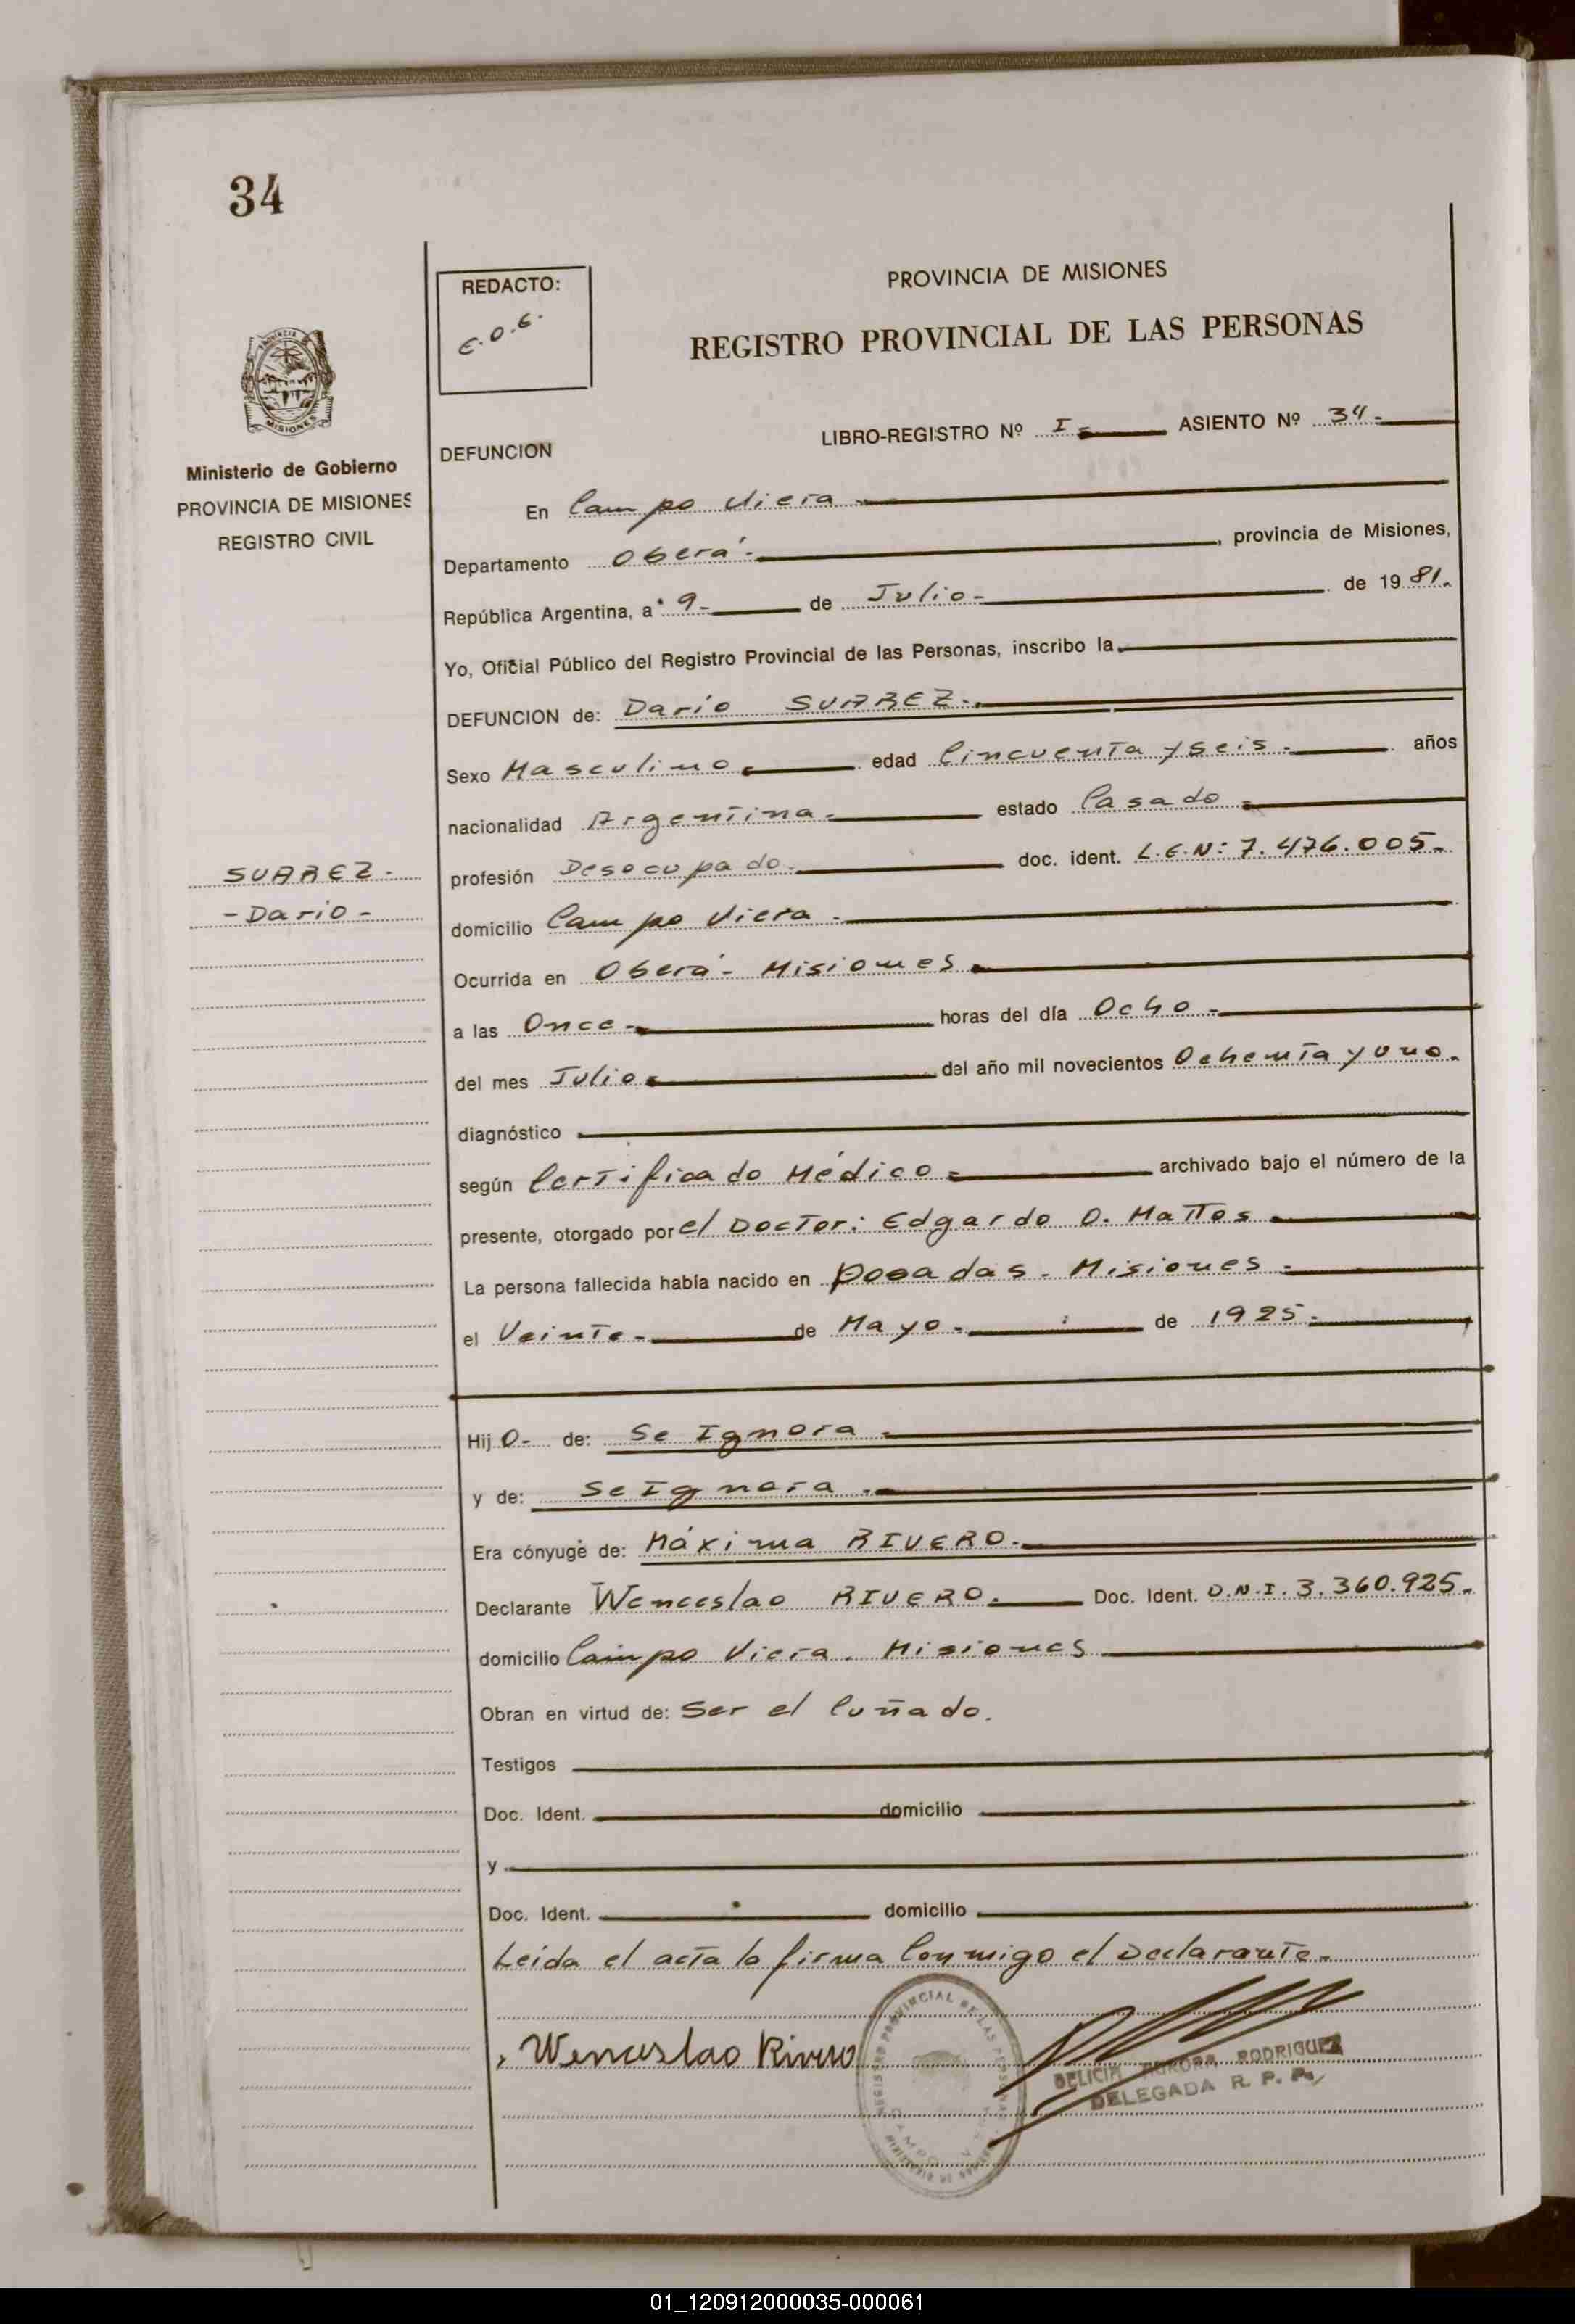 34
REDACTO:
E.O.G.
PROVINCIA DE MISIONES
REGISTRO PROVINCIAL DE LAS PERSONAS
LIBRO-REGISTRO Nº I- ASIENTO Nº 34-
DEFUNCION
MISIONES
Ministerio de Gobierno
PROVINCIA DE MISIONES
REGISTRO CIVIL
En Campo Viera-
Departamento Oberá-, provincia de Misiones,
República Argentina, a 9- de Julio- de 1981.
Yo, Oficial Público del Registro Provincial de las Personas, inscribo la
DEFUNCION de: Dario SUAREZ-
Sexo Masculino edad Cincuenta y seis- años
nacionalidad Argentina- estado Casado-
SUAREZ-
-Dario-
profesión Desocupado- doc. ident. L.E.N: 7.476.005-
domicilio Campo Viera-
Ocurrida en Oberá- Misiones
a las Once- horas del día Ocho-
del mes Julio- del año mil novecientos Ochenta y uno-
diagnóstico
según Certificado Médico- archivado bajo el número de la
presente, otorgado por el Doctor: Edgardo O. Mattos
La persona fallecida había nacido en Posadas- Misiones-
el Veinte- de Mayo- de 1925-
Hij o- de: Se Ignora-
y de: Se Ignora-
Era cónyuge de: Máxima RIVERO-
Declarante Wenceslao RIVERO- Doc. Ident. D.N.I. 3.360.925-
domicilio Campo Viera. Misiones
Obran en virtud de: Ser el Cuñado.
Testigos
Doc. Ident. domicilio
y
Doc. Ident. domicilio
Leida el acta la firma Conmigo el Declarante-
Wenceslao Rivero
DELICIA AURORA RODRIGUEZ
DELEGADA R. P. P.
01_120912000035-000061